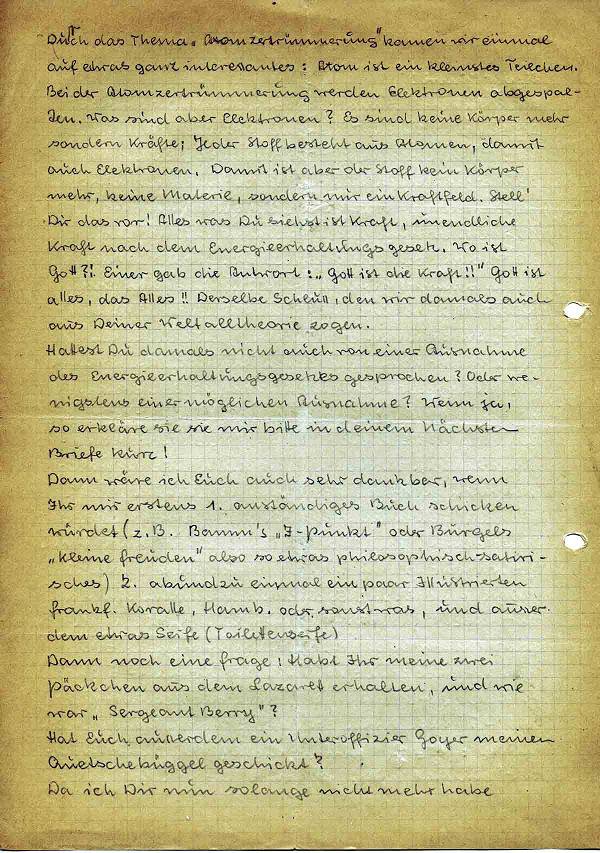 Durch das Thema „Atomzertrümmerung" kamen wir einmal
auf etwas ganz interessantes: Atom ist ein kleinstes Teilchen.
Bei der Atomzertrümmerung werden Elektronen abgespal-
ten. Was sind aber Elektronen? Es sind keine Körper mehr
sondern Kräfte; Jeder Stoff besteht aus Atomen, damit
auch Elektronen. Damit ist aber der Stoff kein Körper
mehr, keine Materie, sondern nur ein Kraftfeld. Stell'
Dir das vor! Alles was Du siehst ist Kraft, unendliche
Kraft nach dem Energieerhaltungsgesetz. Wo ist
Gott?! Einer gab die Antwort: „Gott ist die Kraft!!" Gott ist
alles, das Alles!! Derselbe Schluß, den wir damals auch
aus Deiner Weltalltheorie zogen.
Hattest Du damals nicht auch von einer Ausnahme
des Energieerhaltungsgesetzes gesprochen? Oder we-
nigstens einer möglichen Ausnahme? Wenn ja,
so erkläre sie sie mir bitte in deinem Nächsten
Briefe kurz!
Dann wäre ich Euch auch sehr dankbar, wenn
Ihr mir erstens 1. anständiges Buch schicken
würdet (z.B. Bamm's „I-Punkt" oder Bürgels
„Kleine Freuden" also so etwas philosophisch-satiri-
sches) 2. abundzu einmal ein paar Illustrierten
Frankf. Koralle, Hamb. oder sonstwas, und ausser-
dem etwas Seife (Toilettenseife)
Dann noch eine Frage: Habt Ihr meine zwei
Päckchen aus dem Lazarett erhalten, und wie
war „Sergeant Berry"?
Hat Euch außerdem ein Unteroffizier Goyer meinen
Quetschebüggel geschickt?
Da ich Dir nun solange nicht mehr habe